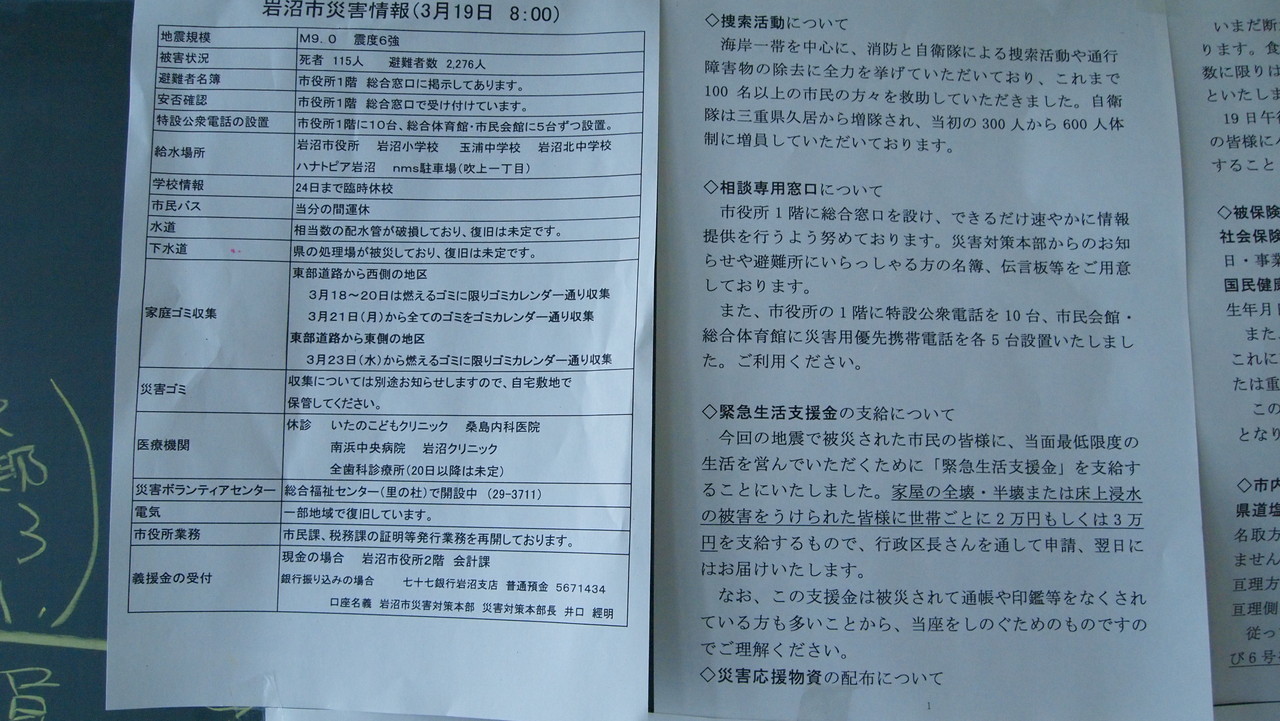 岩沼市災害情報(3月19日 8:00)
地震規模 M9.0 震度6強
被害状況 死者 115人 避難者数 2,276人
避難者名簿 市役所1階 総合窓口に掲示してあります。
安否確認 市役所1階 総合窓口で受け付けています。
特設公衆電話の設置 市役所1階に10台、総合体育館・市民会館に5台ずつ設置。
給水場所 岩沼市役所 岩沼小学校 玉浦中学校 岩沼北中学校
ハナトピア岩沼 nms駐車場(吹上一丁目)
学校情報 24日まで臨時休校
市民バス 当分の間運休
水道 相当数の配水管が破損しており、復旧は未定です。
下水道 県の処理場が被災しており、復旧は未定です。
家庭ゴミ収集 東部道路から西側の地区
3月18~20日は燃えるゴミに限りゴミカレンダー通り収集
3月21日(月)から全てのゴミをゴミカレンダー通り収集
東部道路から東側の地区
3月23日(水)から燃えるゴミに限りゴミカレンダー通り収集
災害ゴミ 収集については別途お知らせしますので、自宅敷地で
保管してください。
医療機関 休診 いたのこどもクリニック 桑島内科医院
南浜中央病院 岩沼クリニック
全歯科診療所(20日以降は未定)
災害ボランティアセンター 総合福祉センター(里の杜)で開設中 (29-3711)
電気 一部地域で復旧しています。
市役所業務 市民課、税務課の証明等発行業務を再開しております。
義援金の受付 現金の場合 岩沼市役所2階 会計課
銀行振り込みの場合 七十七銀行岩沼支店 普通預金 5671434
口座名義 岩沼市災害対策本部 災害対策本部長 井口 經明
◇捜索活動について
海岸一帯を中心に、消防と自衛隊による捜索活動や通行
障害物の除去に全力を挙げていただいており、これまで
100 名以上の市民の方々を救助していただきました。自衛
隊は三重県久居から増隊され、当初の 300 人から 600 人体
制に増員していただいております。
◇相談専用窓口について
市役所1階に総合窓口を設け、できるだけ速やかに情報
提供を行うよう努めております。災害対策本部からのお知
らせや避難所にいらっしゃる方の名簿、伝言板等をご用意
しております。
また、市役所の1階に特設公衆電話を 10 台、市民会館・
総合体育館に災害用優先携帯電話を各5台設置いたしまし
た。ご利用ください。
◇緊急生活支援金の支給について
今回の地震で被災された市民の皆様に、当面最低限度の
生活を営んでいただくために「緊急生活支援金」を支給す
ることにいたしました。家屋の全壊・半壊または床上浸水
の被害をうけられた皆様に世帯ごとに2万円もしくは3万
円を支給するもので、行政区長さんを通して申請、翌日に
はお届けいたします。
なお、この支援金は被災されて通帳や印鑑等をなくされ
ている方も多いことから、当座をしのぐためのものですの
でご理解ください。
◇災害応援物資の配布について
1
いまだ断
ります。食
数に限りは
といたしま
19日午
の皆様に
すること
◇被保険
社会保険
日・事業
国民健
生年月
また、
これに
たは重
この
となり
◇市内
県道塩
名取方
ません
亘理方
亘理側
従っ
び6号